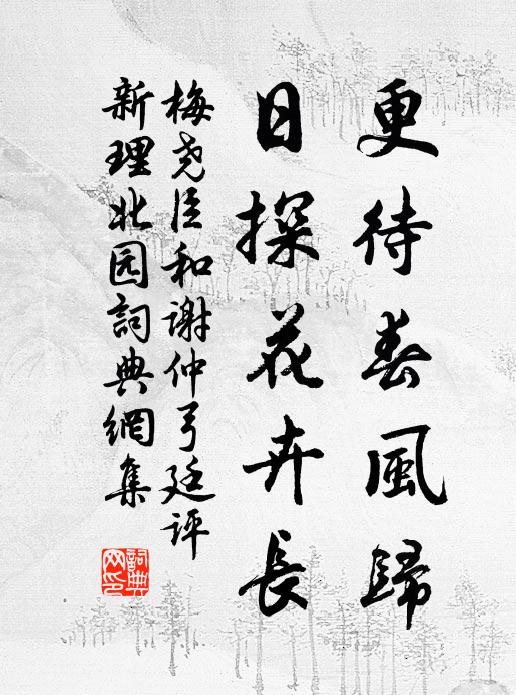 更待春風歸
日探花卉長
梅尧臣和谢仲弓廷评
新理北园詞典網集
詞典网印